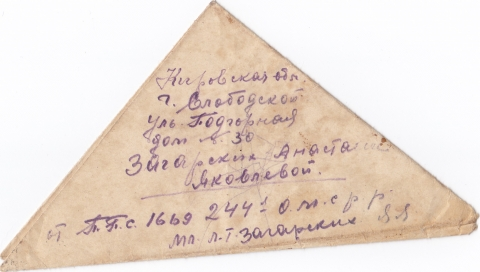 Кировская обл.
г. Слободской
ул. Подгорная
дом № 30
Загарских Анастасии
Яковлевой.
от П.П.С. 1669 244
мл. л-т. Загарских